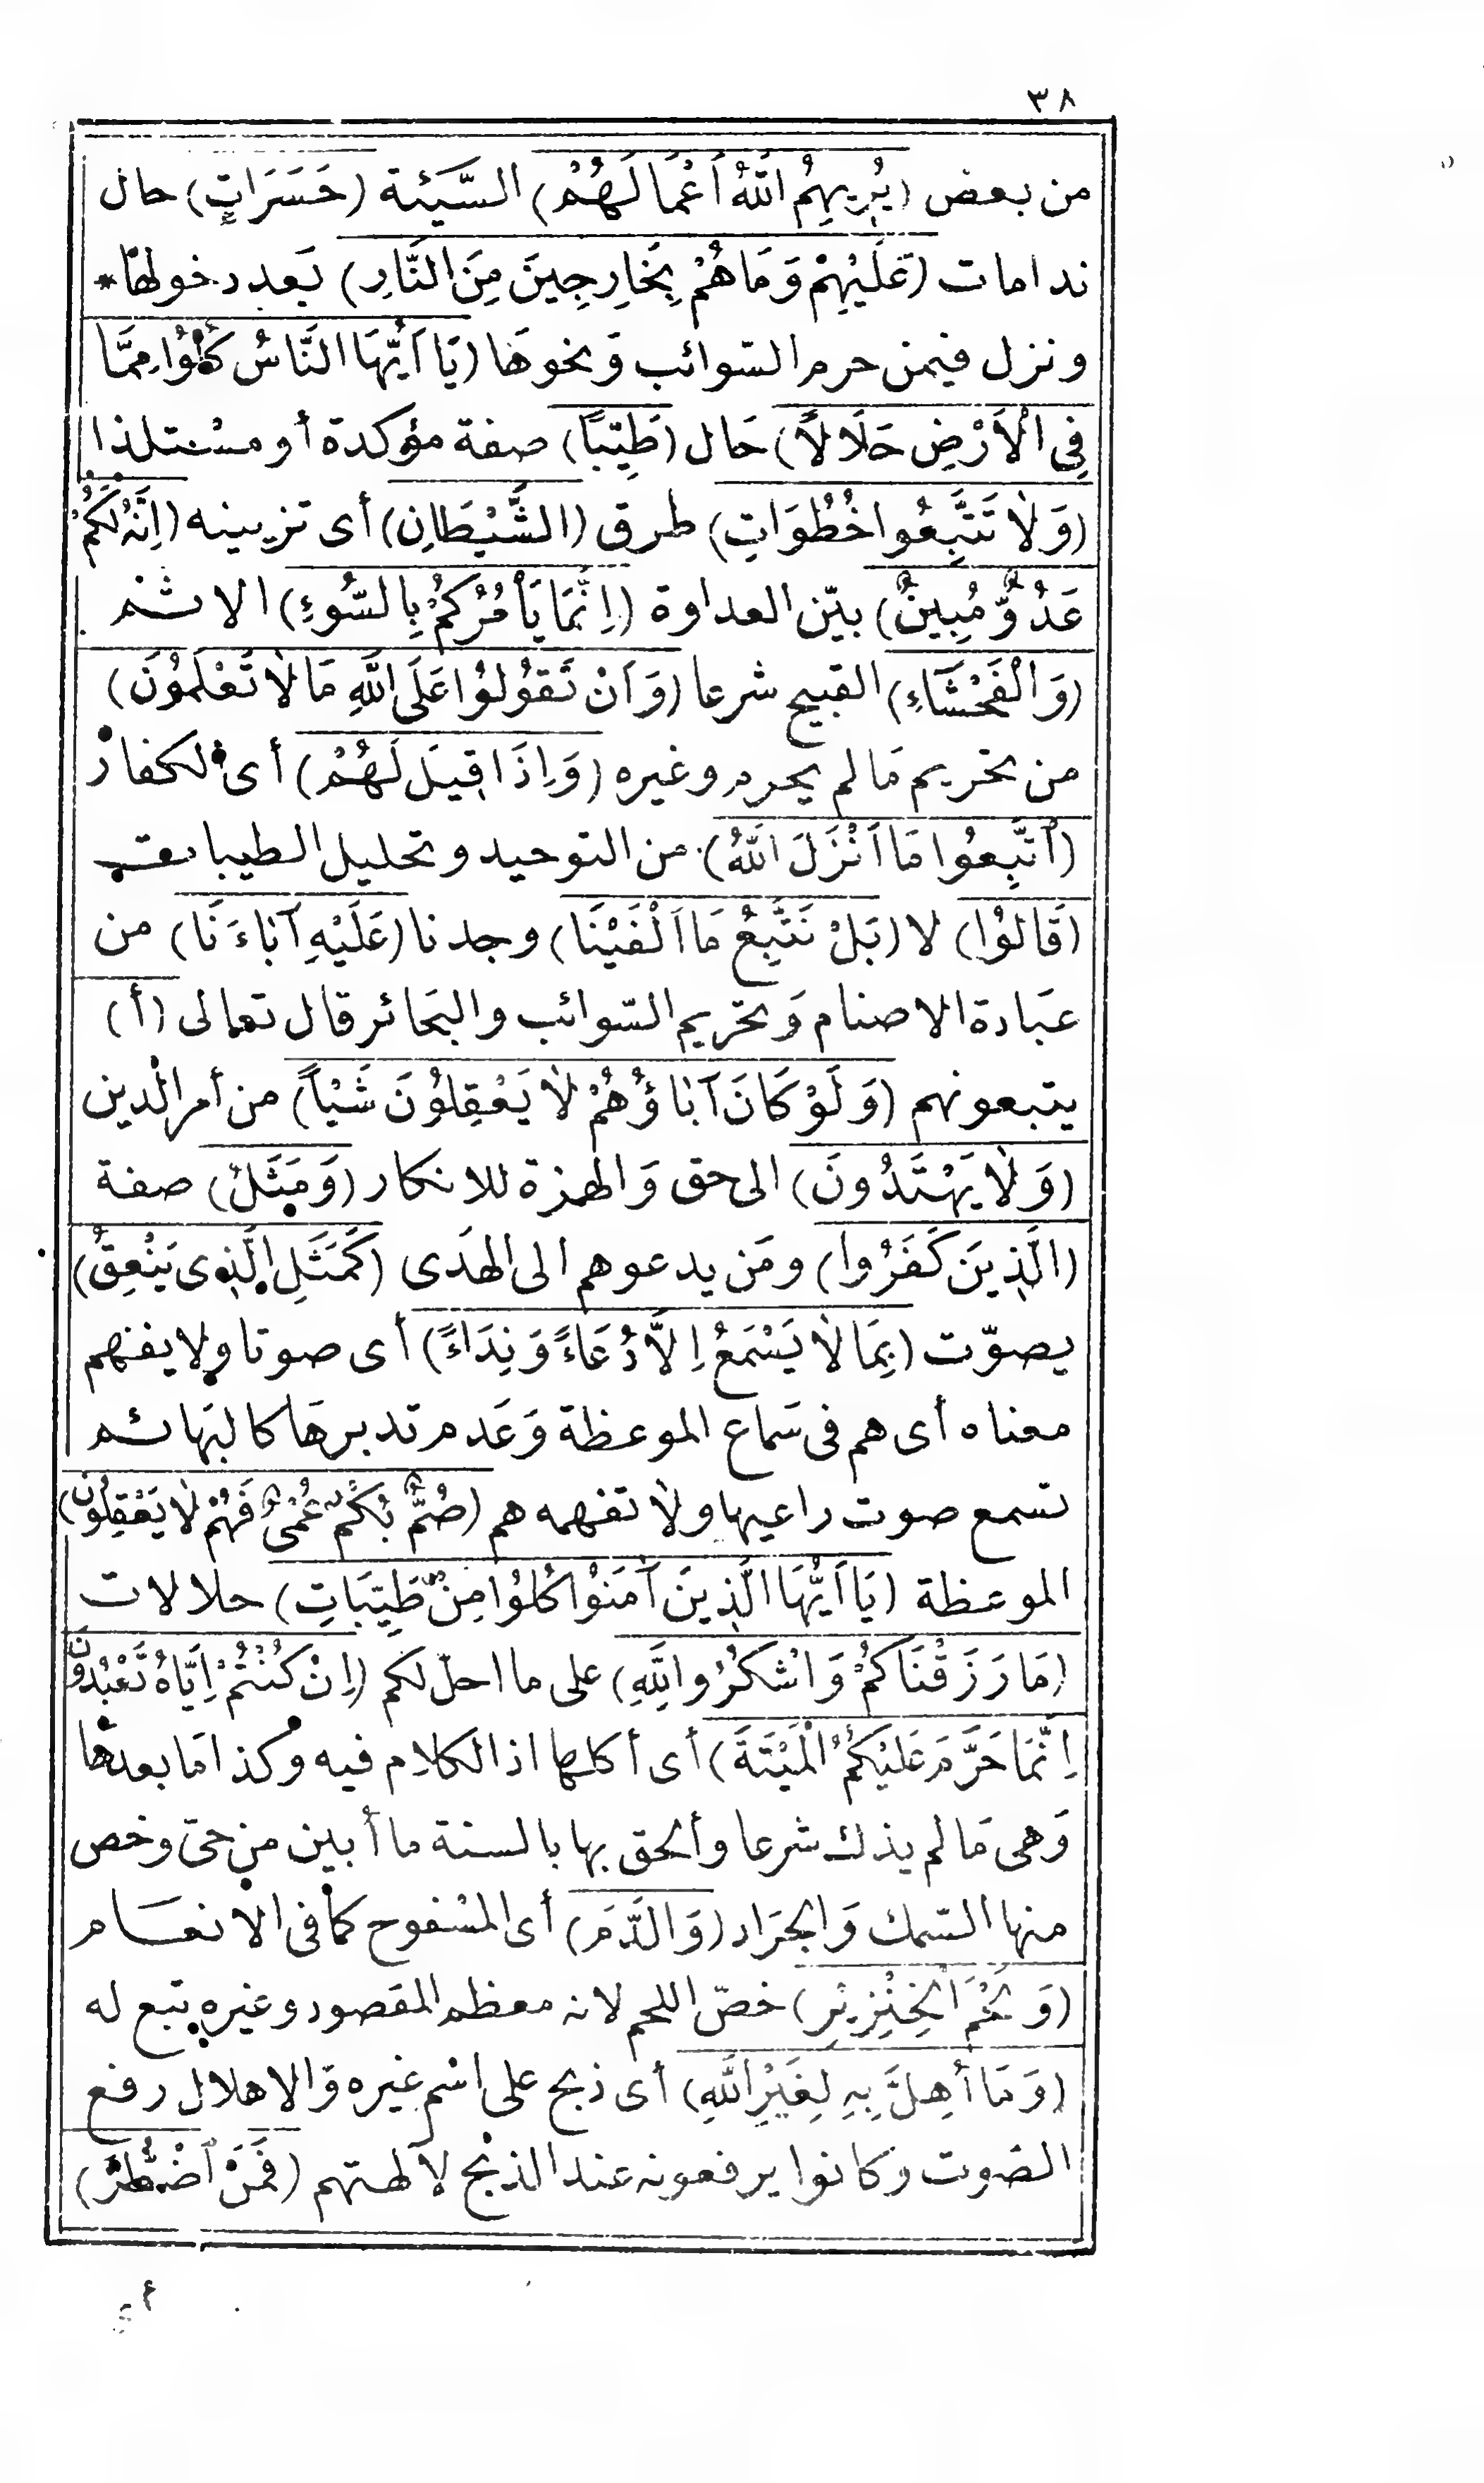 ٣٨
من بعض (يُرِيهِمُ اللَّهُ أَعْمَالَهُمْ) السَّيِّئة (حَسَرَاتٍ) حال
ندامات (عَلَيْهِمْ وَمَا هُمْ بِخَارِجِينَ مِنَ النَّارِ) بَعد دخولهَا *
ونزل فيمن حرم السّوائب وَنحوهَا (يَا أَيُّهَا النَّاسُ كُلُوا مِمَّا
فِي الْأَرْضِ حَلَالًا) حَال (طَيِّبًا) صفة مؤكدة أو مسْتلذا
(وَلَا تَتَّبِعُوا خُطُوَاتِ) طرق (الشَّيْطَانِ) أى تزيينه (اِنَّهُ لَكُمْ
عَدُوٌّ مُبِينٌ) بيّن العداوة (اِنَّمَا يَأْمُرُكُمْ بِالسُّوءِ) الاثم
(وَالْفَحْشَاءِ) القبيح شرعا (وَاَنْ تَقُولُوا عَلَى اللَّهِ مَا لَا تَعْلَمُونَ)
من تحريم مَا لم يحرم وغيره (وَاِذَا قِيلَ لَهُمُ) أى الكفار
(اتَّبِعُوا مَا اَنْزَلَ اللَّهُ) من التوحيد وتحليل الطيبات
(قَالُوا) لا (بَلْ نَتَّبِعُ مَا اَلْفَيْنَا) وجدنا (عَلَيْهِ آبَاءَنَا) من
عبَادة الاصنام وَتحريم السّوائب والبحَائر قال تعالى (أَ)
يتبعونهم (وَلَوْ كَانَ آبَاؤُهُمْ لَا يَعْقِلُونَ شَيْئًا) من أمر الدين
(وَلَا يَهْتَدُونَ) الى حق وَالهمزة للانكار (وَمَثَلُ) صفة
(الَّذِينَ كَفَرُوا) ومَن يدعوهم الى الهدَى (كَمَثَلِ الَّذِى يَنْعِقُ)
يصوّت (بِمَا لَا يَسْمَعُ اِلَّا دُعَاءً وَنِدَاءً) أى صوتا ولا يفهم
معناه أى هم فى سَماع الموعظة وَعَدم تدبرهَا كالبهَائم
تسمع صوت راعيها ولَا تفهمه هم (صُمٌّ بُكْمٌ عُمْىٌ فَهُمْ لَا يَعْقِلُونَ)
الموعظة (يَا اَيُّهَا الَّذِينَ آمَنُوا كُلُوا مِنْ طَيِّبَاتِ) حلالات
(مَا رَزَقْنَاكُمْ وَاشْكُرُوا لِلَّهِ) على ما احلّ لكم (اِنْ كُنْتُمْ اِيَّاهُ تَعْبُدُونَ
اِنَّمَا حَرَّمَ عَلَيْكُمُ الْمَيْتَةَ) أى أكلها اذ الكلام فيه وكذا مَا بعدهَا
وَهى مَا لم يذك شرعا وألحق بها بالسنة ما أبين من حىّ وخص
منها السّمك وَالجرَاد (وَالدَّمَ) أى المسْفوح كما فى الانعَام
(وَلَحْمَ الْخِنْزِيرِ) خصّ اللحم لانه معظم المقصود وغيره تبع له
(وَمَا أُهِلَّ بِهِ لِغَيْرِ اللَّهِ) أى ذبح على اسْم غيره وَالاهلال رفع
الصَوت وكانوا يرفعونه عند الذبح لآلهتهم (فَمَنِ اضْطُرَّ)